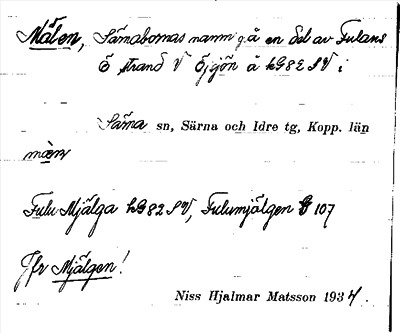 Målen, Särnabornas namn på en del av Fulans
Ö strand V Ö, sjön å hG82 SV i
Särna sn, Särna och Idre tg, Kopp. län
Fulu-Mjälga hG82 SV, Fulumjälgen G 107
Jfr Mjälgen!
Niss Hjalmar Matsson 1934.